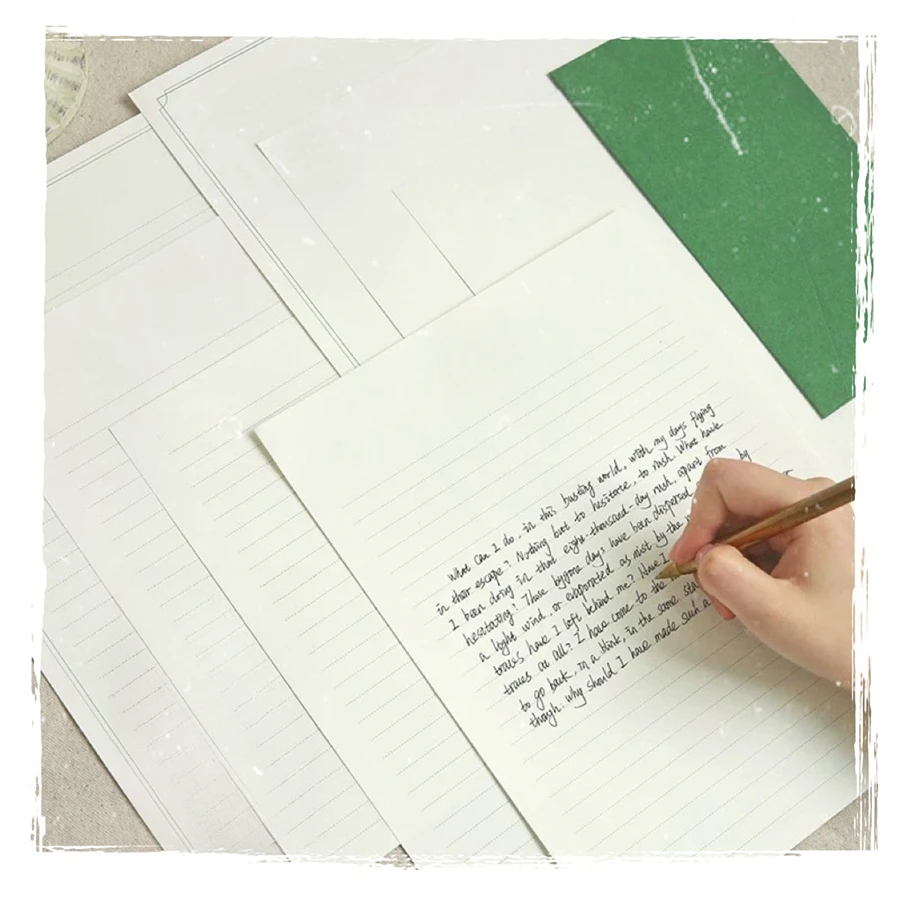 What can I do, in this bustling world, with my days flying
in their escape? Nothing but to hesitate, to rush. What have
I been doing in that eight-thousand-day rush, apart from
hesitating? Those bygone days have been dispersed by
a light wind, or evaporated as mist by the
traces have I left behind me? Have I
traces at all? I have come to the
to go back, in a blink, in the same sta
though: why should I have made such a